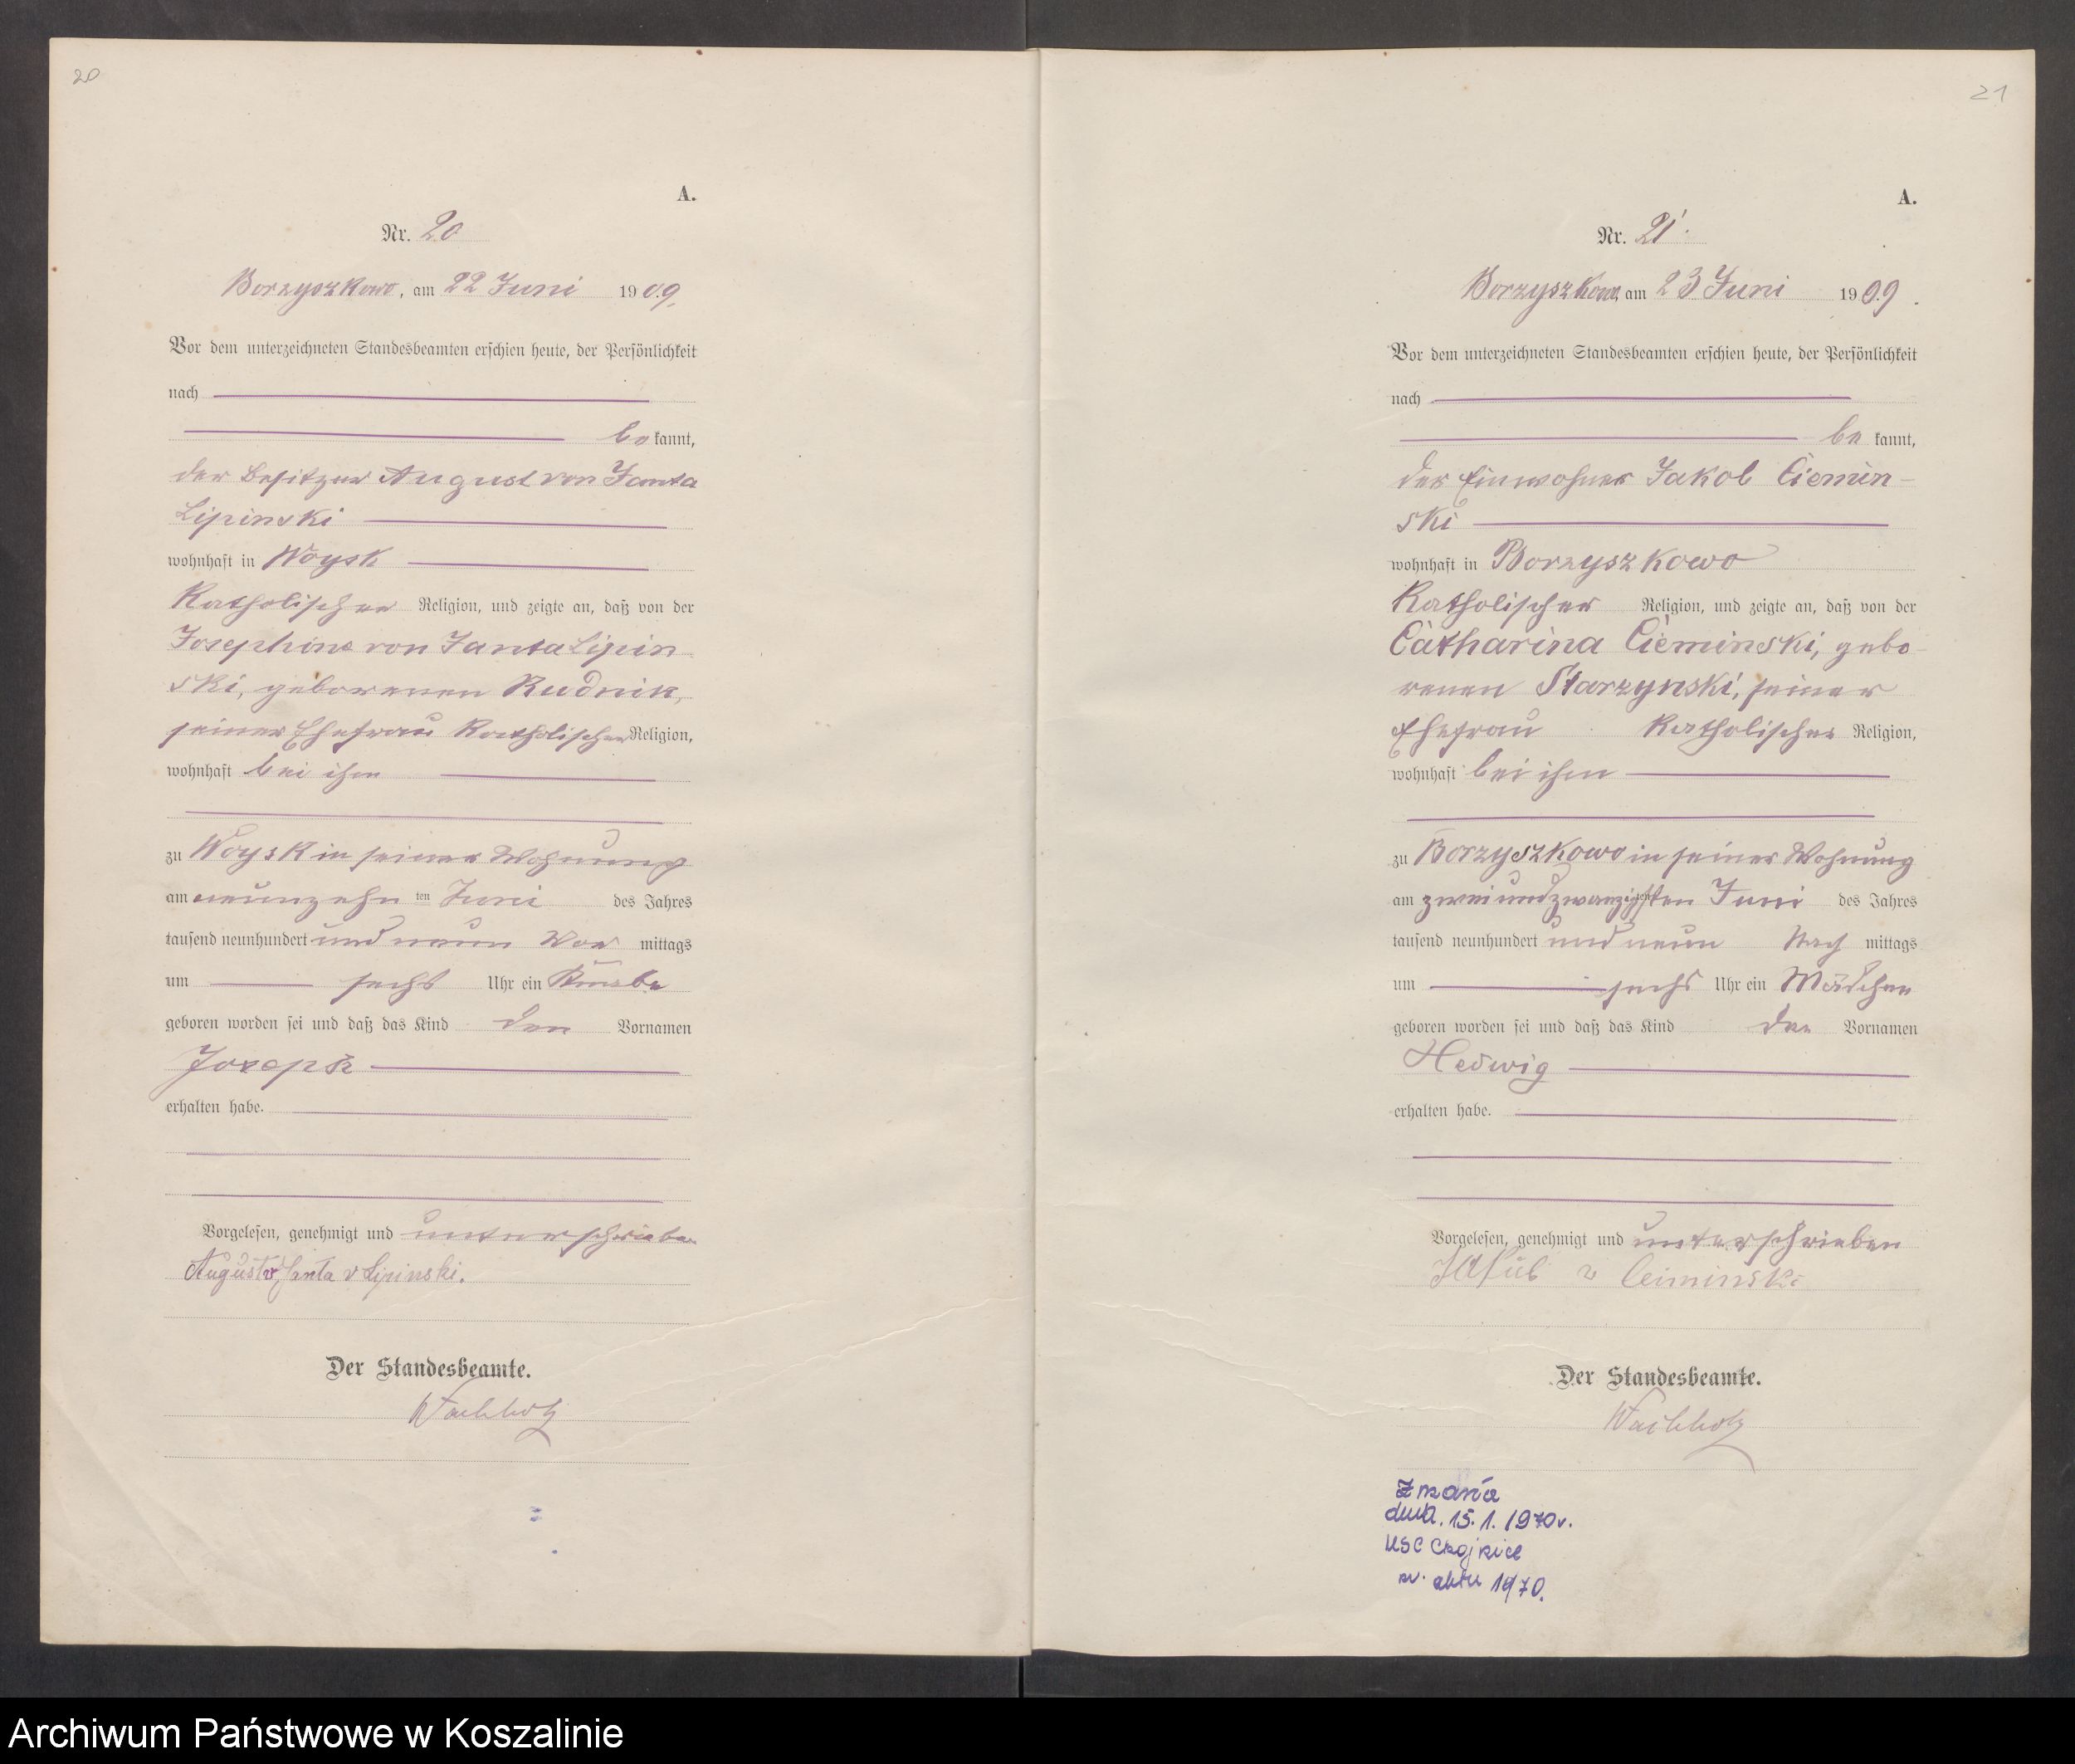 20
A.
Nr. 20
Borzyszkowo, am 22 Juni 1909.
Vor dem unterzeichneten Standesbeamten erschien heute, der Persönlichkeit
nach
be kannt,
der Besitzer August von Janta
Lipinski
wohnhaft in Woysk
Katholischer Religion, und zeigte an, daß von der
Josephine von Janta Lipin-
ski, geborenen Rudnik,
seiner Ehefrau Katholischer Religion,
wohnhaft bei ihm
zu Woysk in seiner Wohnung
am neunzehn ten Juni des Jahres
tausend neunhundert und neun Vor mittags
um sechs Uhr ein Knabe
geboren worden sei und daß das Kind den Vornamen
Joseph
erhalten habe.
Vorgelesen, genehmigt und unterschrieben
August v Janta v Lipinski.
Der Standesbeamte.
Wachholz
21
A.
Nr. 21.
Borzyszkowo, am 23 Juni 1909.
Vor dem unterzeichneten Standesbeamten erschien heute, der Persönlichkeit
nach
be kannt,
der Einwohner Jakob Ciemin-
ski
wohnhaft in Borzyszkowo
Katholischer Religion, und zeigte an, daß von der
Catharina Cieminski, gebo-
renen Starzynski, seiner
Ehefrau Katholischer Religion,
wohnhaft bei ihm
zu Borzyszkowo in seiner Wohnung
am zweiundzwanzigsten Juni des Jahres
tausend neunhundert und neun Nach mittags
um sechs Uhr ein Mädchen
geboren worden sei und daß das Kind den Vornamen
Hedwig
erhalten habe.
Vorgelesen, genehmigt und unterschrieben
Jakub v Ceiminski
Der Standesbeamte.
Wachholz
Zmarła
dnia. 15.1.1970r.
USC Chojnice
nr. aktu 19/70.
Archiwum Państwowe w Koszalinie